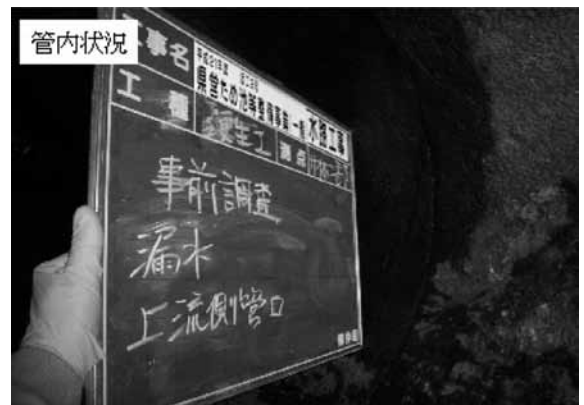 管内状況
工事名
平成21年度
県営ため池等整備事業 一種 水路工事
工種
更生工
測点
事前調査
漏水
上流側管口